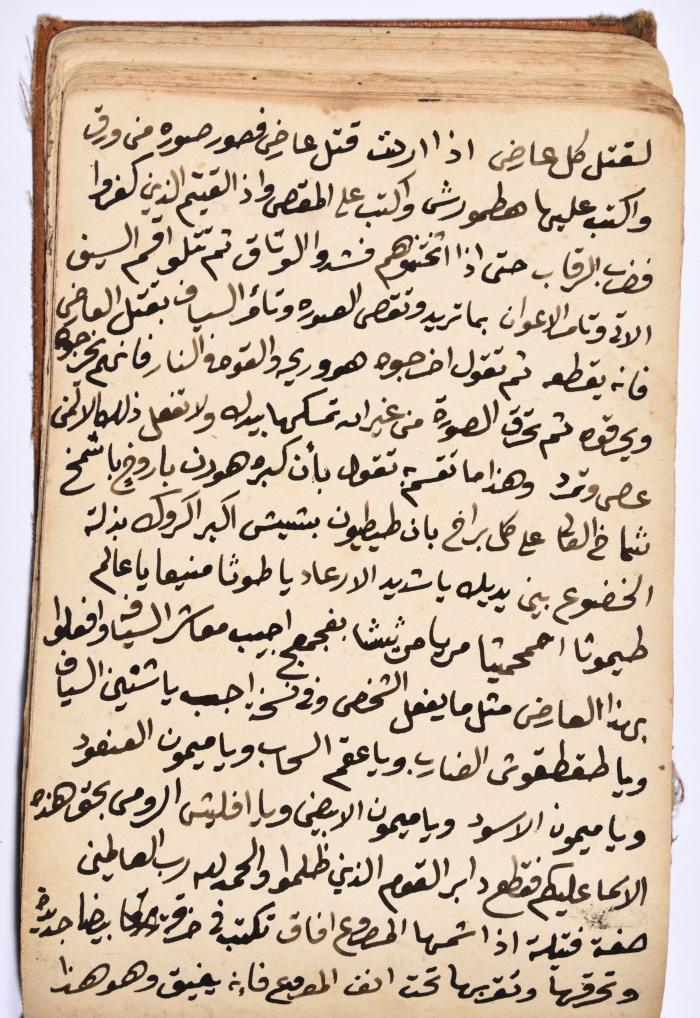 لقتل كل عارض اذا اردت قتل عارض فصور صوره من ورق
واكتب عليها هطمورش واكتب على المقص واذا لقيتم الذين كفروا
فضرب الرقاب حتى اذا اثخنتموهم فشدوا الوثاق ثم تتلو اقسم السيف
الاتى وتامر الاعوان بما تريد وتقص الصوره وتامر السياف بقتل العارض
فانه يقطعه ثم تقول اخرجوه هوريه والقوه فى النار فانهم يخرجوه
ويحرقوه ثم تحرق الصورة من غير ان تمسكها بيدك ولا تفعل ذلك الا لمن
عصى وتمرد وهذا ما تقسم به تقول بأن كبره هورن باروخ باشمخ
شماخ العالى على كل براخ بان طيطيون بشيش اكبر اكروك بذلة
الخضوع بين يديك يا شديد الارعاد يا طوثا منيعا يا عالم
طيموثا احمحميثا مريا مرثيشا بفجمعج اجيب معاشر السيافه وافعلوا
بهذا العارض مثل ما يفعل الشخص وفى نسخة اجب يا شنتين السياف
ويا طقطقوش الضارب ويا عقم السحاب ويا ميمون العنقود
ويا ميمون الاسود ويا ميمون الابيض ويا افليش الرومى بحق هذه
الاسما عليكم فقطع دابر القوم الذين ظلموا والحمد لله رب العالمين
صفة فتيلة اذا اشمها المصروع افاق تكتب فى خرقة بيضا جديدة
وتحرقها وتقربها تحت انف المصروع فانه يفيق وهو هذا